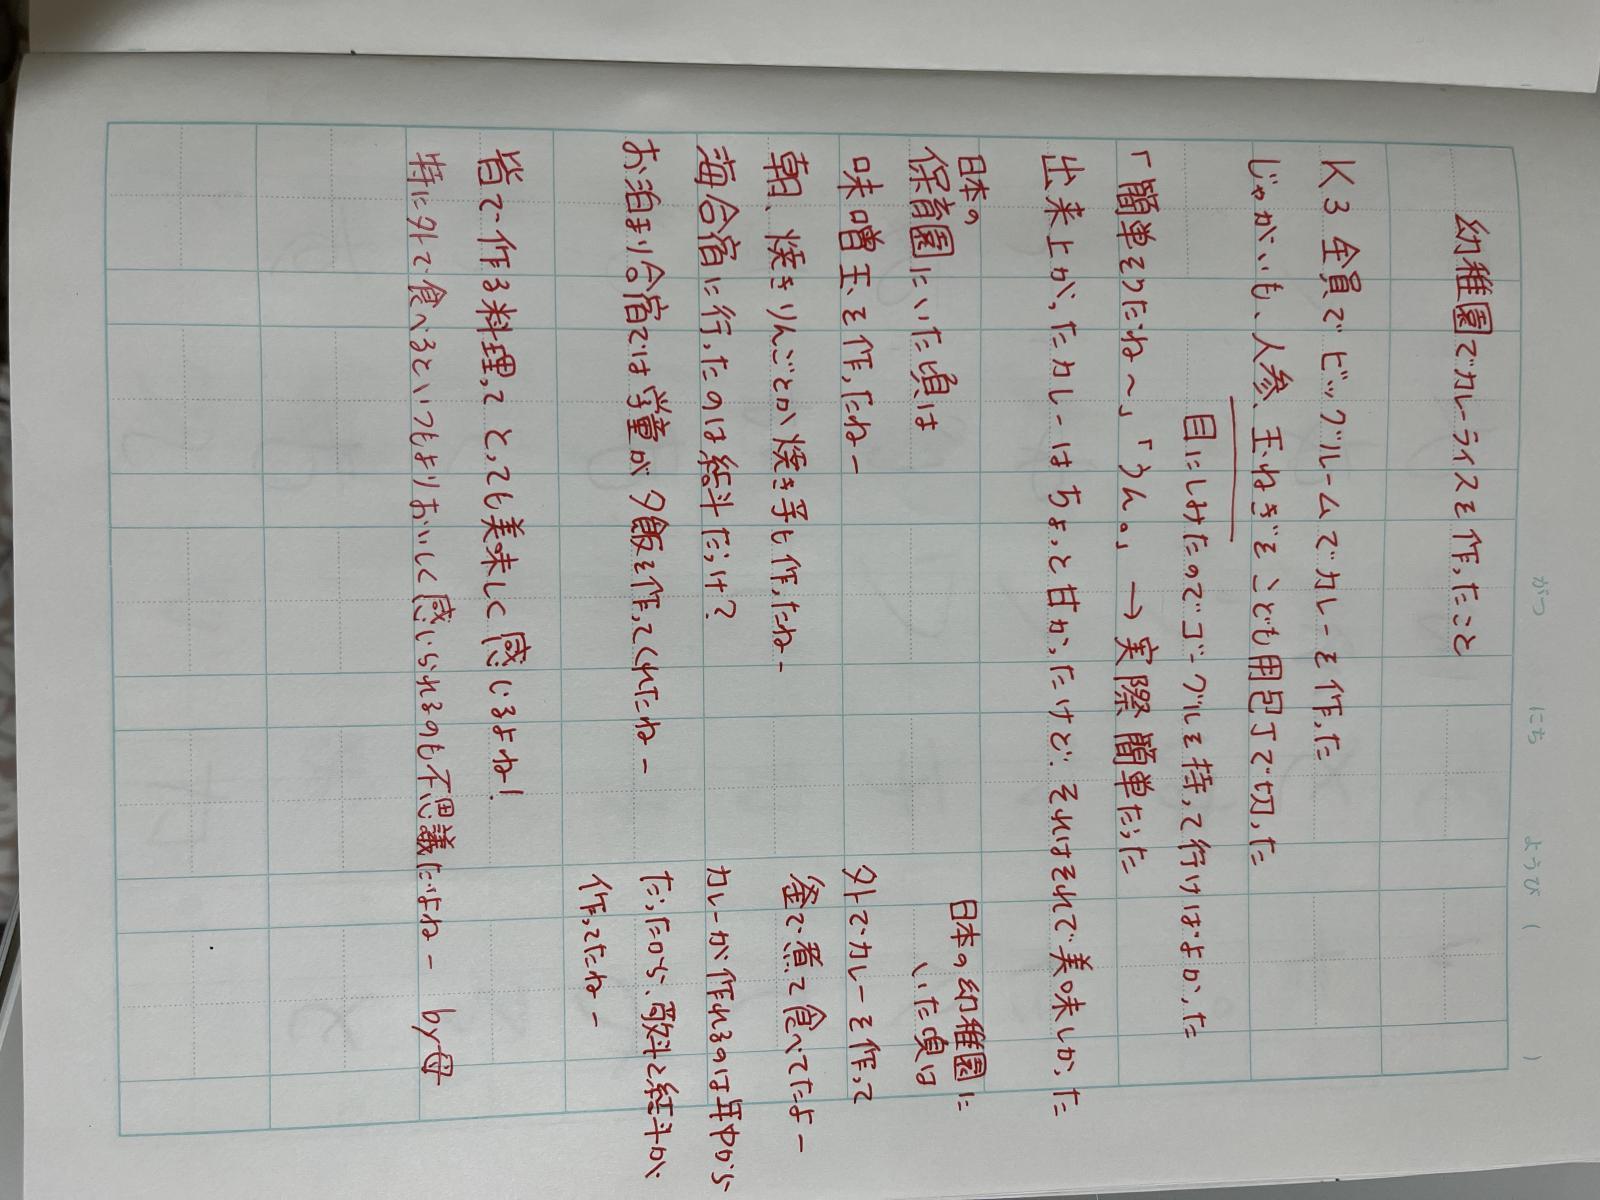 がつ　にち　ようび（　）
幼稚園でカレーライスを作ったこと
K3全員でビッグルームでカレーを作った
じゃがいも、人参、玉ねぎをこども用包丁で切った
目にしみたのでゴーグルを持って行けばよかった
「簡単そうだね〜」「うん。」→実際簡単だった
出来上がったカレーはちょっと甘かったけど、それはそれで美味しかった
日本の
保育園にいた頃は
味噌玉を作ったねー
朝、焼きりんごとか焼き芋も作ったねー
海合宿に行ったのは絃斗だけ?
お泊まり合宿では学童が夕飯を作ってくれたねー
日本の幼稚園に
いた頃は
外でカレーを作って
釜で煮て食べてたよー
カレーが作れるのは年中から
だったから、歌斗と絃斗が
作ってたねー
皆で作る料理って とっても美味しく感じるよね!
特に外で食べるといつもよりおいしく感じられるのも不思議だよねー by母